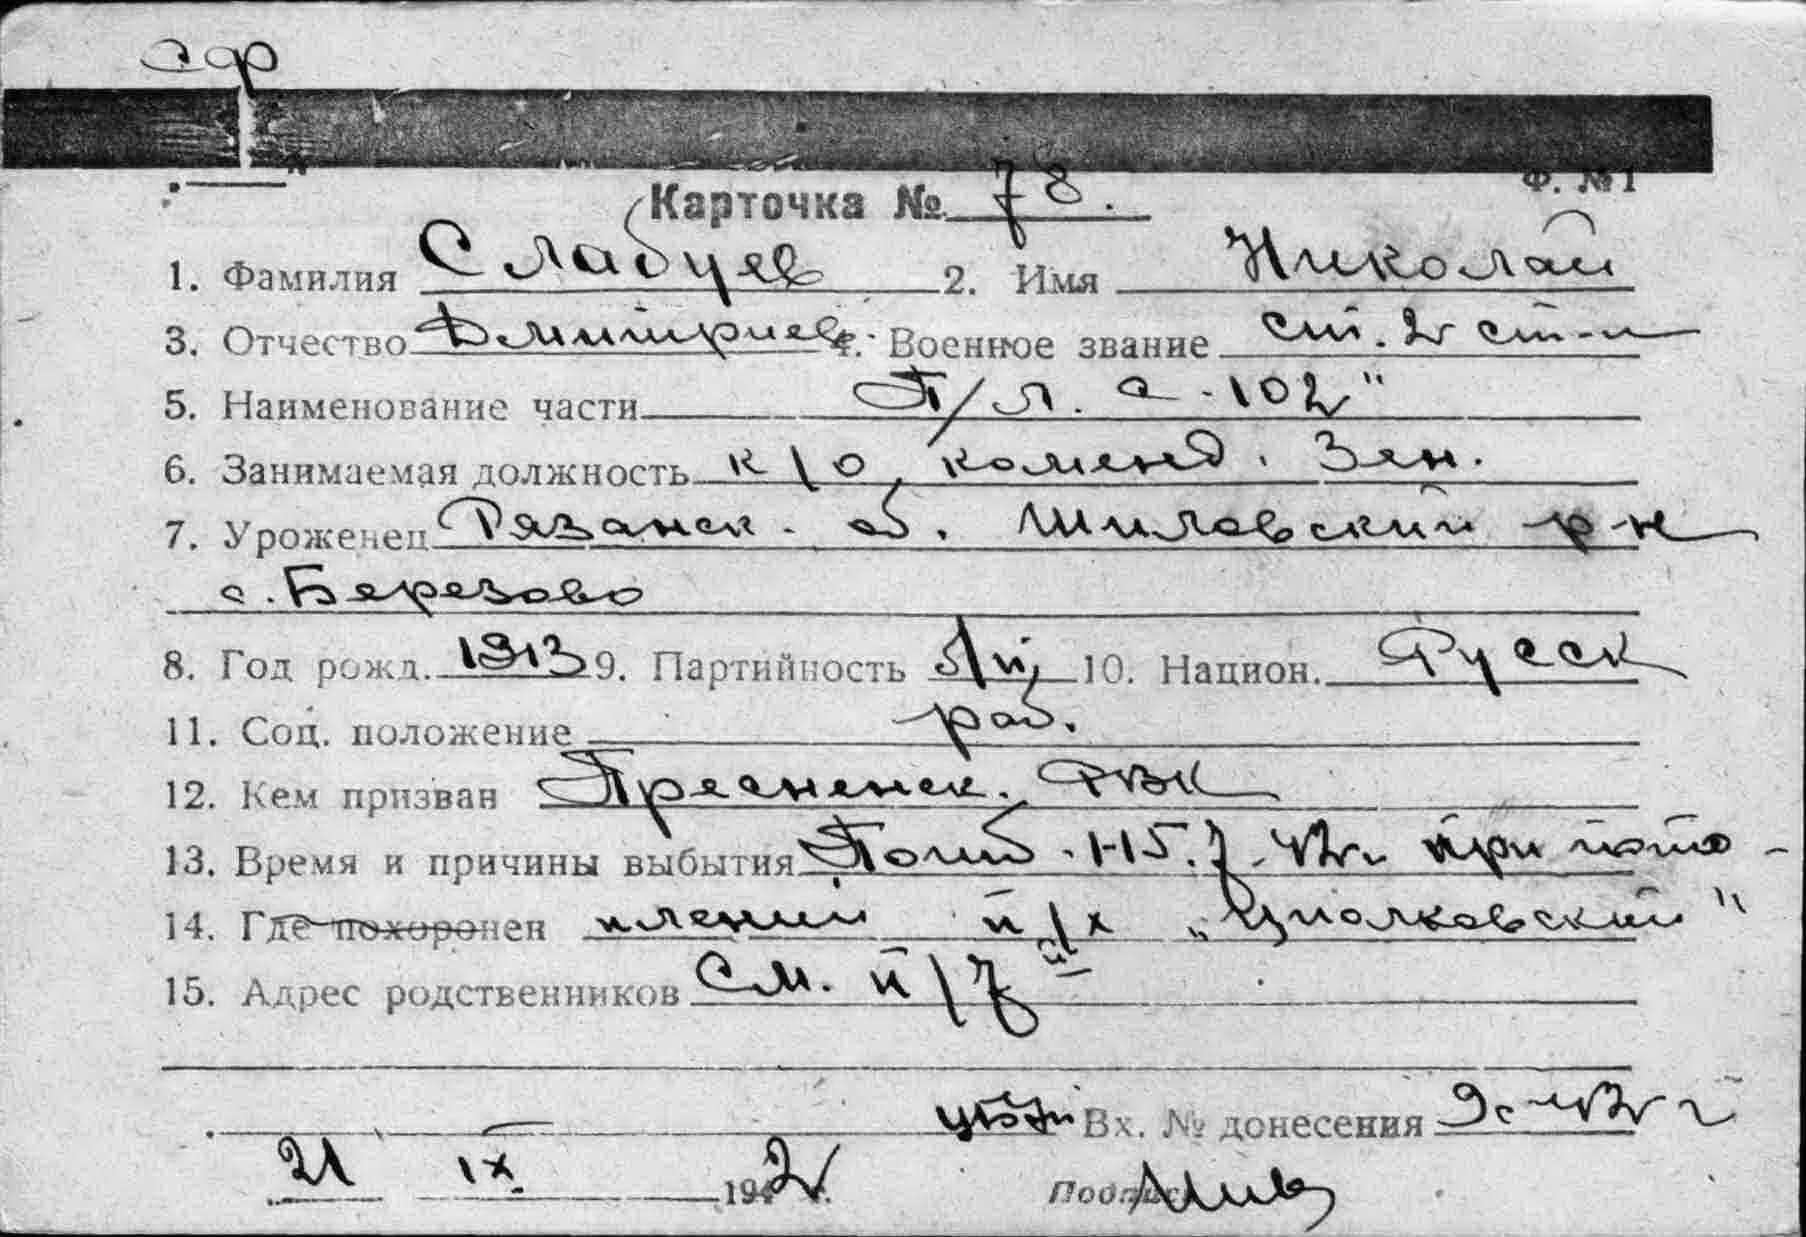 сф
Ф. №1
Карточка № 78.
1. Фамилия Слабуев 2. Имя Николай
3. Отчество Дмитриев. 4. Военное звание ст. 2 ст-и
5. Наименование части П/л. С-102"
6. Занимаемая должность к/о, коменд. Зен.
7. Уроженец Рязанск. об. Шиловский р-н
с. Березово
8. Год рожд. 1913 9. Партийность б/п, 10. Национ. Русск
11. Соц. положение раб.
12. Кем призван Пресненск. РВК
13. Время и причины выбытия Погиб. 1-15.7.42г. при пото-
14. Где похоронен плении п/х „Циолковский"
15. Адрес родственников См. п/7
Вх. № донесения
21 IX 1942
Подпись